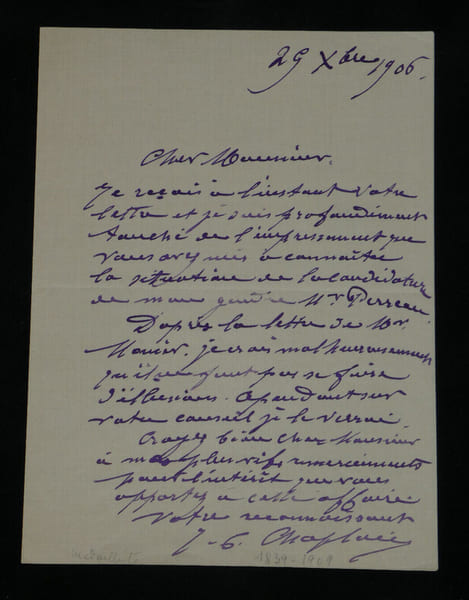 29 Xbre 1906.
Cher Monsieur,
Je reçois à l'instant votre
lettre et je suis profondément
touché de l'empressement que
vous avez mis à connaître
la situation de la candidature
de mon gendre Mr. Perreau.
D'après la lettre de Mr.
Monier, je crois malheureusement
qu'il ne faut pas se faire
d'illusions. Cependant sur
votre conseil je le verrai
Croyez bien cher Monsieur
à mes plus vifs remerciements
pour l'intérêt que vous
apportez à cette affaire.
Votre reconnaissant
J-C. Chaplain
1839-1909